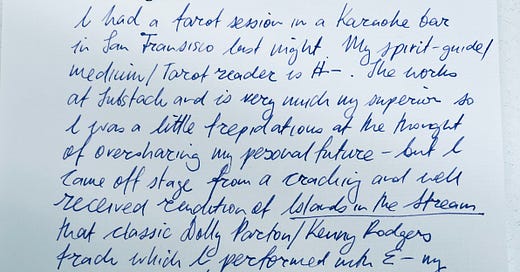 I had a tarot session in a Karaoke bar
in San Fransisco last night. My spirit-guide/
medium/Tarot reader is H–. She works
at Substack and is very much my superior so
I was a little trepidatious at the thought
of oversharing my personal future – but I
came off stage from a cracking and well
received rendition of Islands in the Stream
that classic Dolly Parton/Kenny Rodgers
track which I performed with E – my